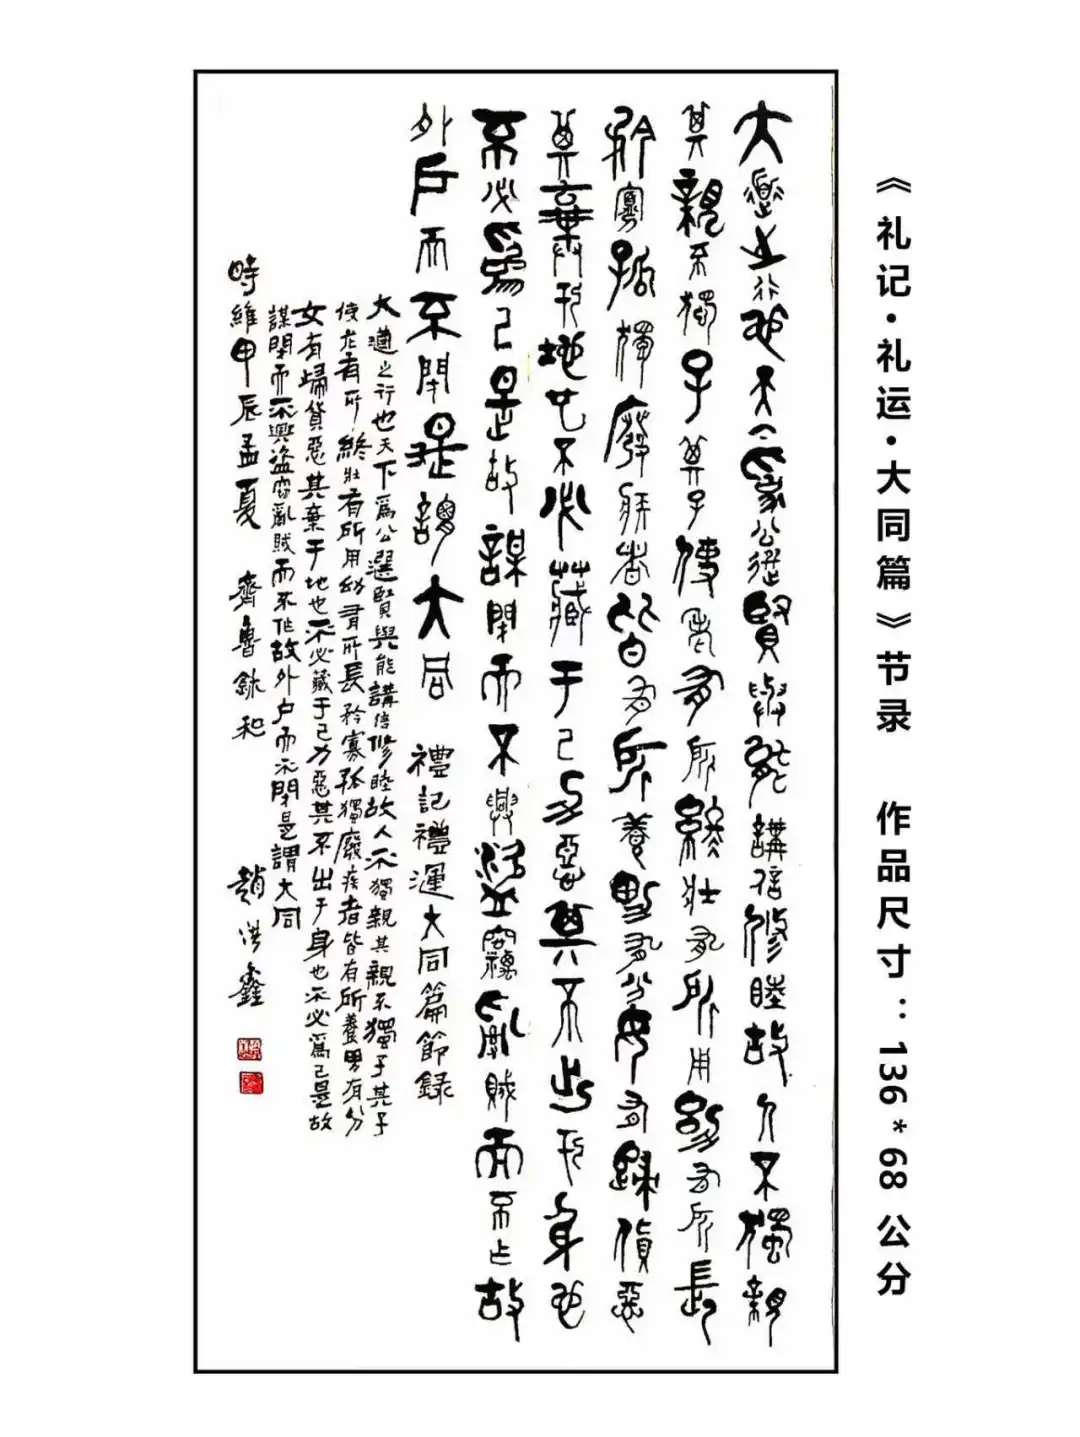 《礼记·礼运·大同篇》节录 作品尺寸：136*68公分
大道之行也天下爲公選賢與能講信修睦故人不獨親
其親不獨子其子使老有所終壯有所用幼有所長
矜寡孤獨廢疾者皆有所養男有分女有歸貨惡
其棄于地也不必藏于己力惡其不出于身也
不必爲己是故謀閉而不興盜竊亂賊而不作故
外戶而不閉是謂大同 禮記禮運大同篇節録
大道之行也天下爲公選賢與能講信修睦故人不獨親其親不獨子其子
使老有所終壯有所用幼有所長矜寡孤獨廢疾者皆有所養男有分
女有歸貨惡其棄于地也不必藏于己力惡其不出于身也不必爲己是故
謀閉而不興盜竊亂賊而不作故外户而不閉是謂大同
時維甲辰孟夏 齊魯鉥和 趙洪鑫